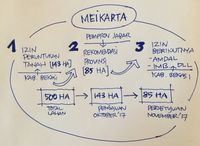 MEIKARTA
1 IZIN
PERUNTUKAN
TANAH [143 HA]
KAB. BEKASI
PEMPROV JABAR
2 REKOMENDASI
PROVINSI
[85 HA]
3 IZIN
BERIKUTNYA
- AMDAL
- IMB, DLL
KAB. BEKASI
500 HA
TOTAL
LAHAN
143 HA
OKTOBER '17
85 HA
PERSETUJUAN
NOVEMBER '17